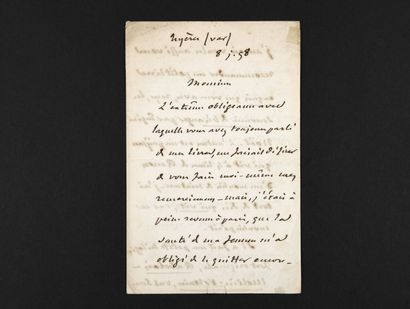 Hyères (var)
8 j. 58
Monsieur
L'extrême obligeance avec
laquelle vous avez toujours parlé
de mes livres, me faisait désirer
de vous faire moi-même mes
remerciemens - mais, j'étais à
peine revenu à paris, que la
santé de ma femme m'a
obligé de le quitter encore